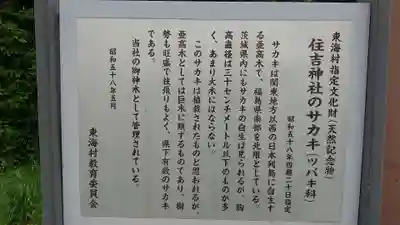 東海村指定文化財(天然記念物)
住吉神社のサカキ(ツバキ科)
昭和五十八年四月二十日指定
サカキは関東地方以西の日本列島に自生す
る亜高木で、福島県南部を北限としている。
茨城県内にもサカキの自生は見られるが、胸
高直径は三十センチメートル以下のものが多
く、あまり大木にはならない。
このサカキは植栽されたものと思われるが、
亜高木としては巨木に類するものであり、樹
勢も旺盛で枝張りもよく、県下有数のサカキ
である。
当社の御神木として管理されている。
昭和五十八年五月
東海村教育委員会